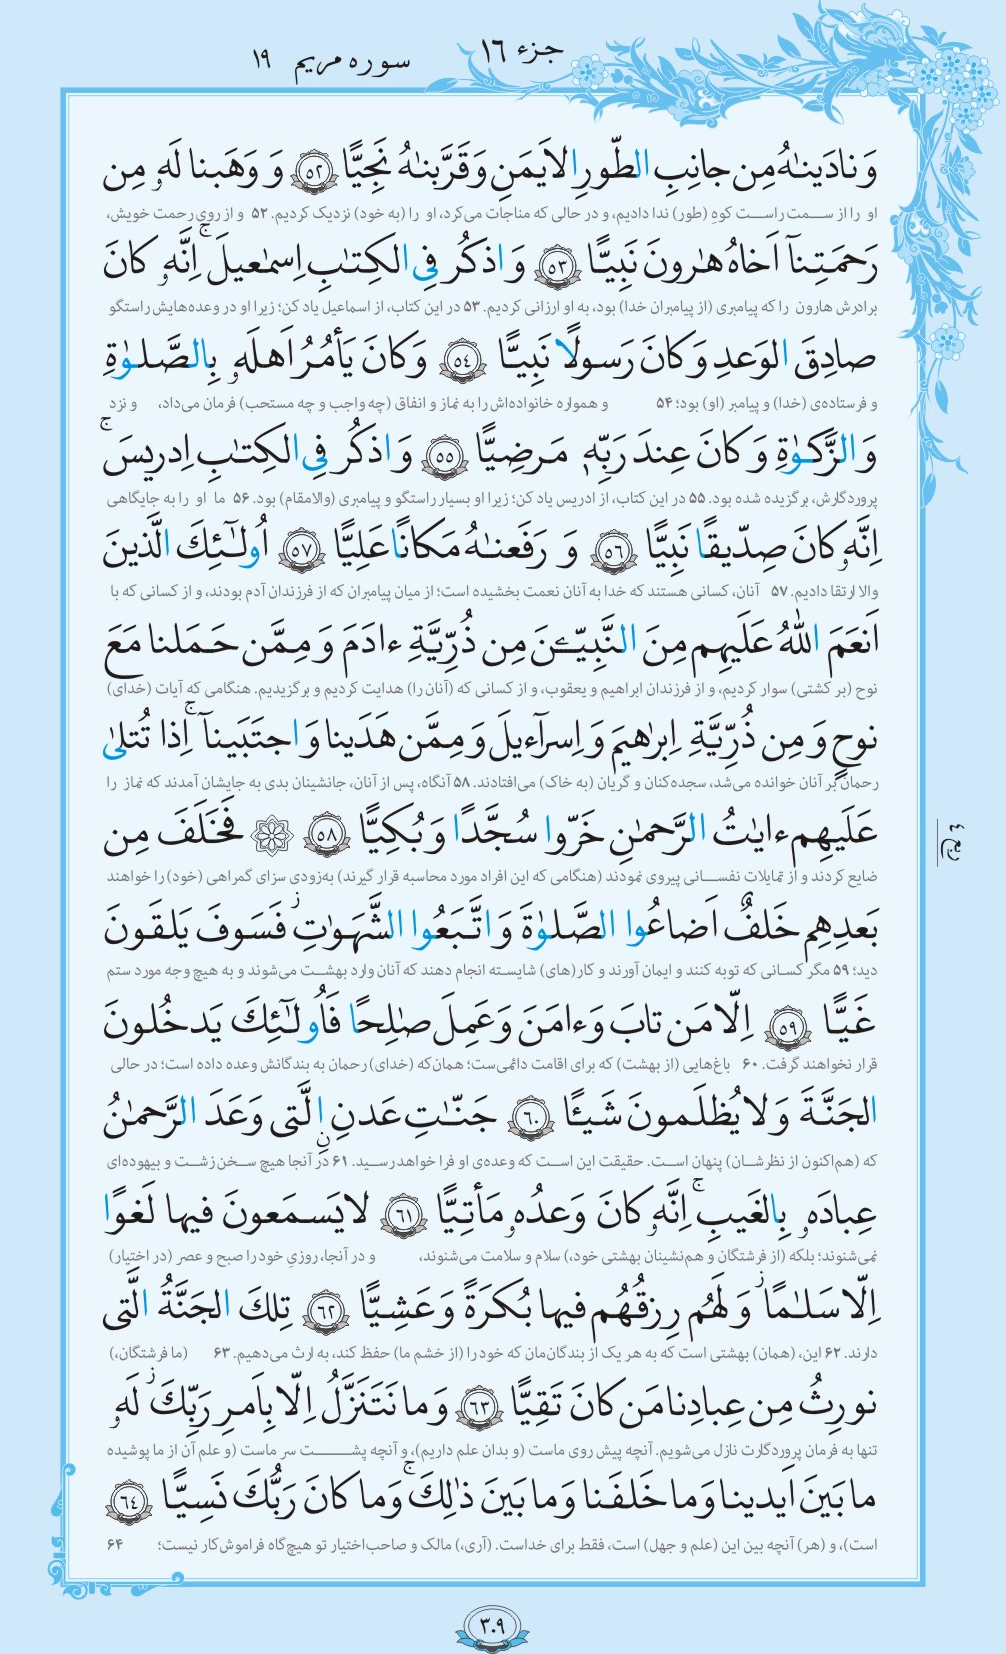 جزء ۱۶
سوره مریم ۱۹
وَ نادَینٰهُ مِن جانِبِ الطّورِ الاَیمَنِ وَ قَرَّبنٰهُ نَجِیًّا ﴿۵۲﴾ وَ وَهَبنا لَهٗ مِن
او را از سمت راست کوهِ (طور) ندا دادیم، و در حالی که مناجات می‌کرد، او را (به خود) نزدیک کردیم. ۵۲ و از رویِ رحمت خویش،
رَحمَتِنآ اَخاهُ هٰرونَ نَبِیًّا ﴿۵۳﴾ وَ اذکُر فِی الکِتٰبِ اِسمٰعیلَ ۚ اِنَّهٗ کانَ
برادرش هارون را که پیامبری (از پیامبران خدا) بود، به او ارزانی کردیم. ۵۳ در این کتاب، از اسماعیل یاد کن؛ زیرا او در وعده‌هایش راستگو
صادِقَ الوَعدِ وَ کانَ رَسولًا نَبِیًّا ﴿۵۴﴾ وَ کانَ یَأمُرُ اَهلَهٗ بِالصَّلوٰةِ
و فرستاده‌ی (خدا) و پیامبر (او) بود؛ ۵۴ و همواره خانواده‌اش را به نماز و انفاق (چه واجب و چه مستحب) فرمان می‌داد، و نزد
وَ الزَّکوٰةِ وَ کانَ عِندَ رَبِّهٖ مَرضِیًّا ﴿۵۵﴾ وَ اذکُر فِی الکِتٰبِ اِدریسَ ۚ
پروردگارش، برگزیده شده بود. ۵۵ در این کتاب، از ادریس یاد کن؛ زیرا او بسیار راستگو و پیامبری (والامقام) بود. ۵۶ ما او را به جایگاهی
اِنَّهٗ کانَ صِدّیقًا نَبِیًّا ﴿۵۶﴾ وَ رَفَعنٰهُ مَکانًا عَلِیًّا ﴿۵۷﴾ اُولٰٓئِکَ الَّذینَ
والا ارتقا دادیم. ۵۷ آنان، کسانی هستند که خدا به آنان نعمت بخشیده است؛ از میان پیامبران که از فرزندان آدم بودند، و از کسانی که با
اَنعَمَ اللهُ عَلَیهِم مِنَ النَّبِیّـٖنَ مِن ذُرِّیَّةِ ءادَمَ وَ مِمَّن حَمَلنا مَعَ
نوح (بر کشتی) سوار کردیم، و از فرزندان ابراهیم و یعقوب، و از کسانی که (آنان را) هدایت کردیم و برگزیدیم. هنگامی که آیات (خدای)
نوحٍ وَ مِن ذُرِّیَّةِ اِبرٰهیمَ وَ اِسرآءیلَ وَ مِمَّن هَدَینا وَ اجتَبَینآ ۚ اِذا تُتلیٰ
رحمان بر آنان خوانده می‌شد، سجده‌کنان و گریان (به خاک) می‌افتادند. ۵۸ آنگاه، پس از آنان، جانشینان بدی به جایشان آمدند که نماز را
عَلَیهِم ءایٰتُ الرَّحمٰنِ خَرّوا سُجَّدًا وَ بُکِیًّا ﴿۵۸﴾ فَخَلَفَ مِن
ضایع کردند و از تمایلات نفسانی پیروی نمودند (هنگامی که این افراد مورد محاسبه قرار گیرند) به‌زودی سزای گمراهی (خود) را خواهند
بَعدِهِم خَلفٌ اَضاعُوا الصَّلوٰةَ وَ اتَّبَعُوا الشَّهَوٰتِ ۖ فَسَوفَ یَلقَونَ
دید؛ ۵۹ مگر کسانی که توبه کنند و ایمان آورند و کار(های) شایسته انجام دهند که آنان وارد بهشت می‌شوند و به هیچ وجه مورد ستم
غَیًّا ﴿۵۹﴾ اِلّا مَن تابَ وَ ءامَنَ وَ عَمِلَ صٰلِحًا فَاُولٰٓئِکَ یَدخُلونَ
قرار نخواهند گرفت. ۶۰ باغ‌هایی (از بهشت) که برای اقامت دائمی‌ست؛ همان‌که (خدای) رحمان به بندگانش وعده داده است؛ در حالی
الجَنَّةَ وَ لا یُظلَمونَ شَیـًٔا ﴿۶۰﴾ جَنّٰتِ عَدنٍ الَّتی وَعَدَ الرَّحمٰنُ
که (هم‌اکنون از نظرشان) پنهان است. حقیقت این است که وعده‌ی او فرا خواهد رسید. ۶۱ در آنجا هیچ سخن زشت و بیهوده‌ای
عِبادَهٗ بِالغَیبِ ۚ اِنَّهٗ کانَ وَعدُهٗ مَأتِیًّا ﴿۶۱﴾ لا یَسمَعونَ فیها لَغوًا
نمی‌شنوند؛ بلکه (از فرشتگان و هم‌نشینان بهشتی خود،) سلام و سلامت می‌شنوند، و در آنجا، روزیِ خود را صبح و عصر (در اختیار)
اِلّا سَلٰمًا ۖ وَ لَهُم رِزقُهُم فیها بُکرَةً وَ عَشِیًّا ﴿۶۲﴾ تِلکَ الجَنَّةُ الَّتی
دارند. ۶۲ این، (همان) بهشتی است که به هر یک از بندگان‌مان که خود را (از خشم ما) حفظ کند، به ارث می‌دهیم. ۶۳ (ما فرشتگان،)
نورِثُ مِن عِبادِنا مَن کانَ تَقِیًّا ﴿۶۳﴾ وَ ما نَتَنَزَّلُ اِلّا بِاَمرِ رَبِّکَ ۖ لَهٗ
تنها به فرمان پروردگارت نازل می‌شویم. آنچه پیش روی ماست (و بدان علم داریم)، و آنچه پشت سر ماست (و علم آن از ما پوشیده
ما بَینَ اَیدینا وَ ما خَلفَنا وَ ما بَینَ ذٰلِکَ ۚ وَ ما کانَ رَبُّکَ نَسِیًّا ﴿۶۴﴾
است)، و (هر) آنچه بین این (علم و جهل) است، فقط برای خداست. (آری،) مالک و صاحب‌اختیار تو هیچ‌گاه فراموش‌کار نیست؛ ۶۴
۳۰۹